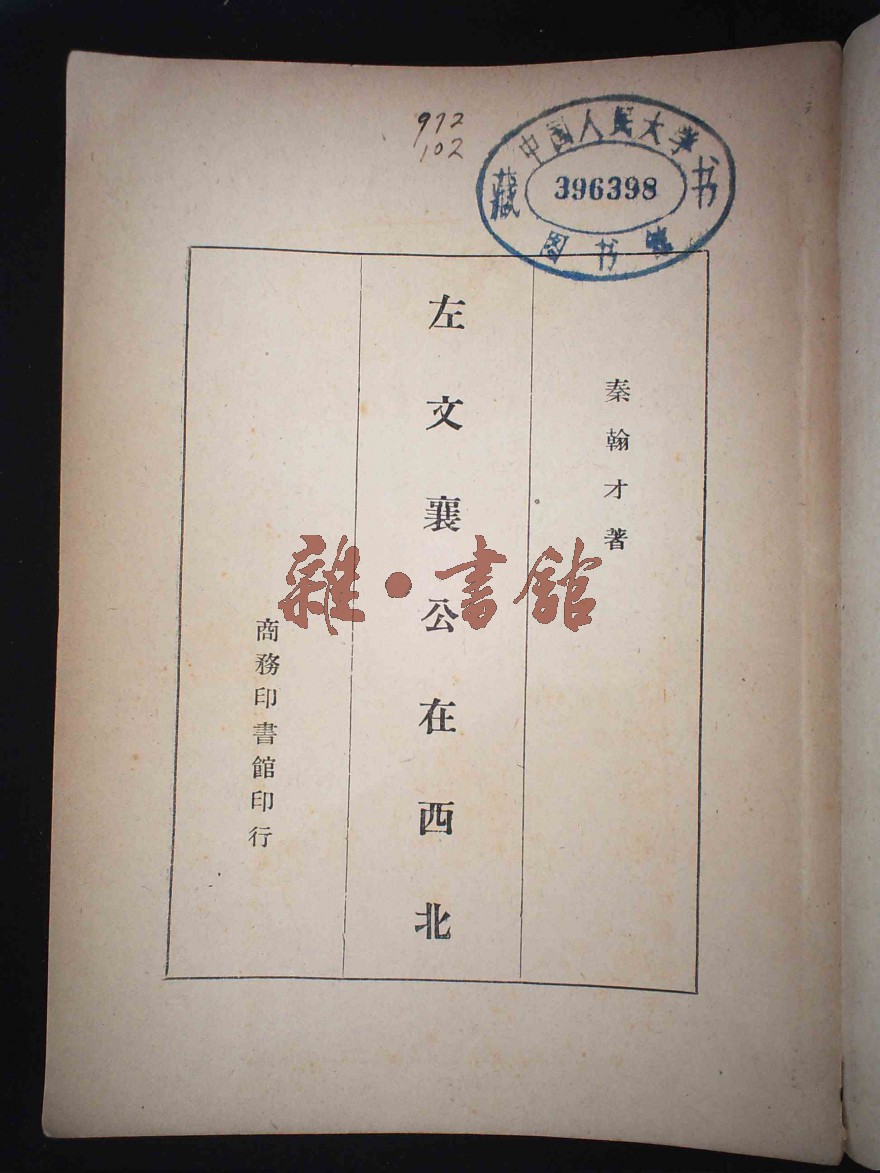 972
102
中国人民大学
藏 396398 书
图书馆
秦翰才著
左文襄公在西北
商務印書館印行
雜·書館